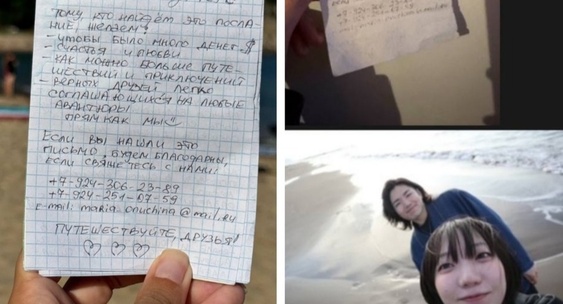 ТОМУ, КТО НАЙДЁТ ЭТО ПОСЛА-
НИЕ, ЖЕЛАЕМ:
- ЧТОБЫ БЫЛО МНОГО ДЕНЕГ $
- СЧАСТЬЯ И ЛЮБВИ
- КАК МОЖНО БОЛЬШЕ ПУТЕ-
ШЕСТВИЙ И ПРИКЛЮЧЕНИЙ
- ВЕРНЫХ ДРУЗЕЙ ЛЕГКО
СОГЛАШАЮЩИХСЯ НА ЛЮБЫЕ
АВАНТЮРЫ
ПРЯМ КАК МЫ
ЕСЛИ ВЫ НАШЛИ ЭТО
ПИСЬМО, БУДЕМ БЛАГОДАРНЫ,
ЕСЛИ СВЯЖЕТЕСЬ С НАМИ:
+7-924-306-23-89
+7-924-251-07-59
E-mail: maria.onuchina@mail.ru
ПУТЕШЕСТВУЙТЕ, ДРУЗЬЯ!